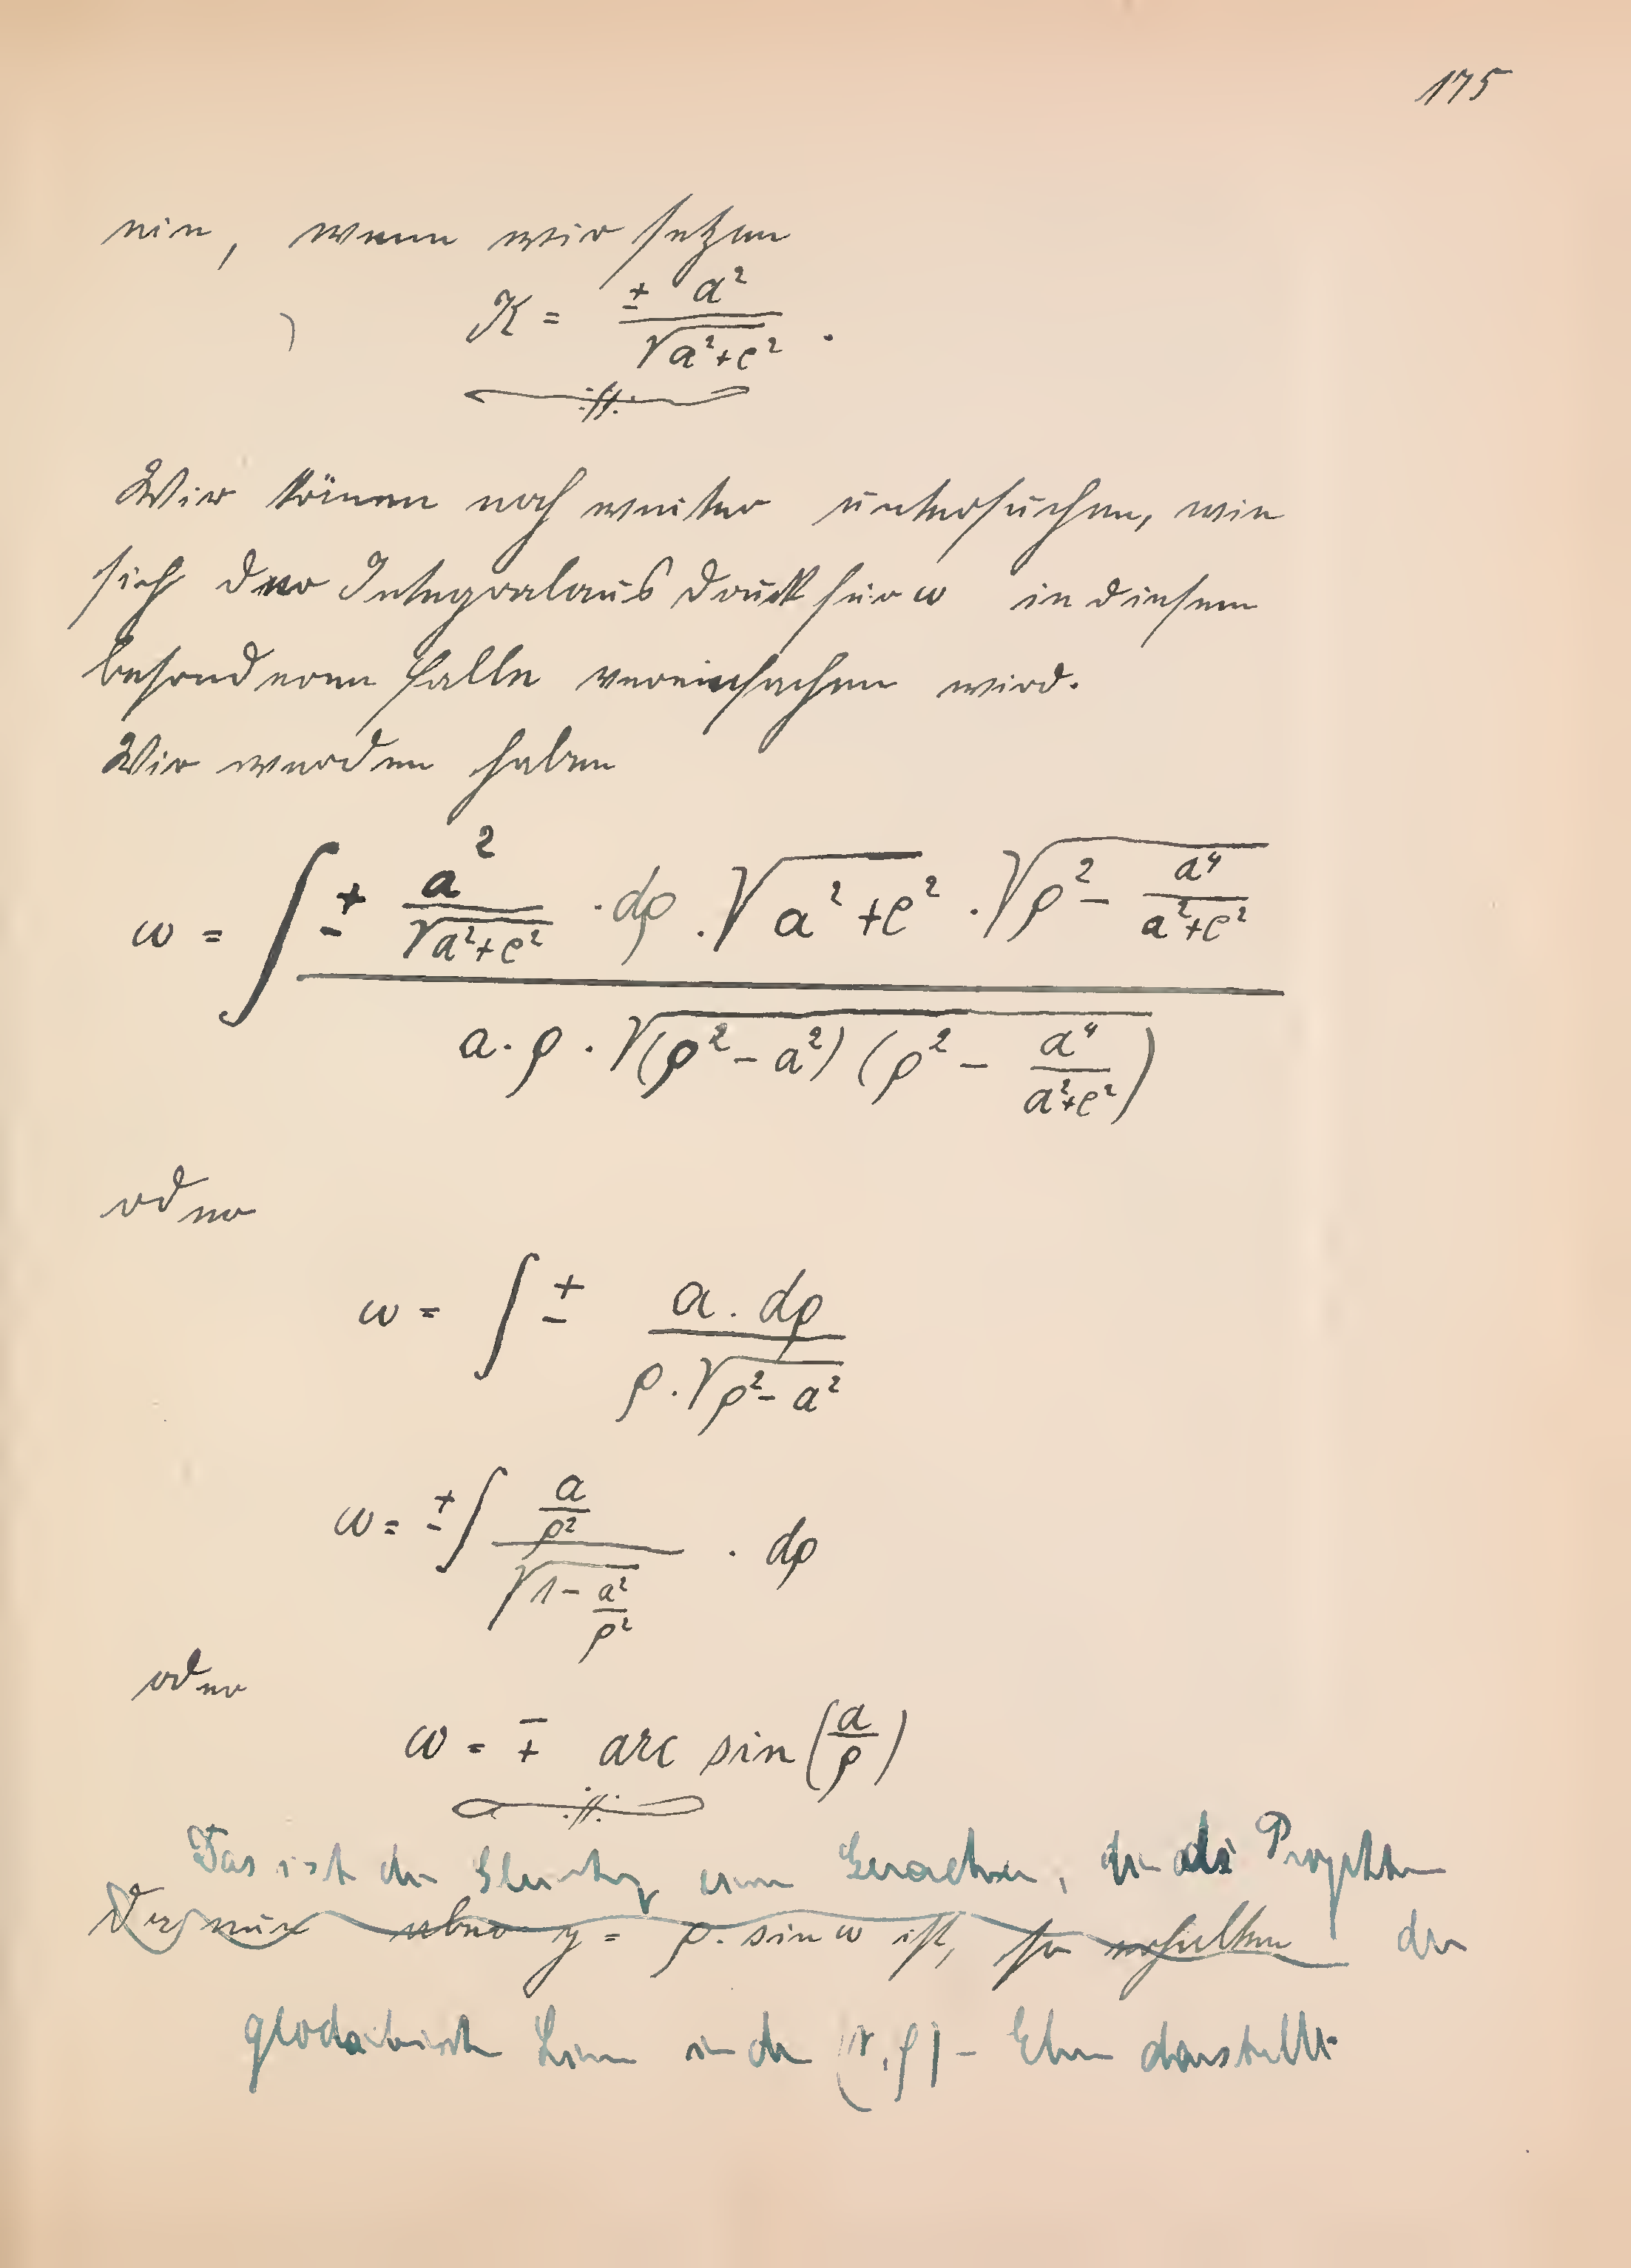 175
ein, wenn wir setzen
K = ± a² / √(a²+c²) .
Wir können noch weiter untersuchen, wie
sich der Integralausdruck für ω in diesem
besonderen Falle vereinfachen wird.
Wir werden haben
ω = ∫ ± a² / √(a²+c²) · dρ . √(a²+c²) . √(ρ² − a⁴/(a²+c²)) / a·ρ·√((ρ²−a²)(ρ² − a⁴/(a²+c²)))
oder
ω = ∫ ± a . dρ / ρ.√(ρ²−a²)
ω = ± ∫ (a/ρ²) / √(1 − a²/ρ²) · dρ
oder
ω = ∓ arc sin (a/ρ)
Das ist die Gleichung einer Geraden, die die Projektion
Da nun aber y = ρ. sin ω ist, so erhalten der
geodätischen Linie in der (r, φ) - Ebene darstellt.